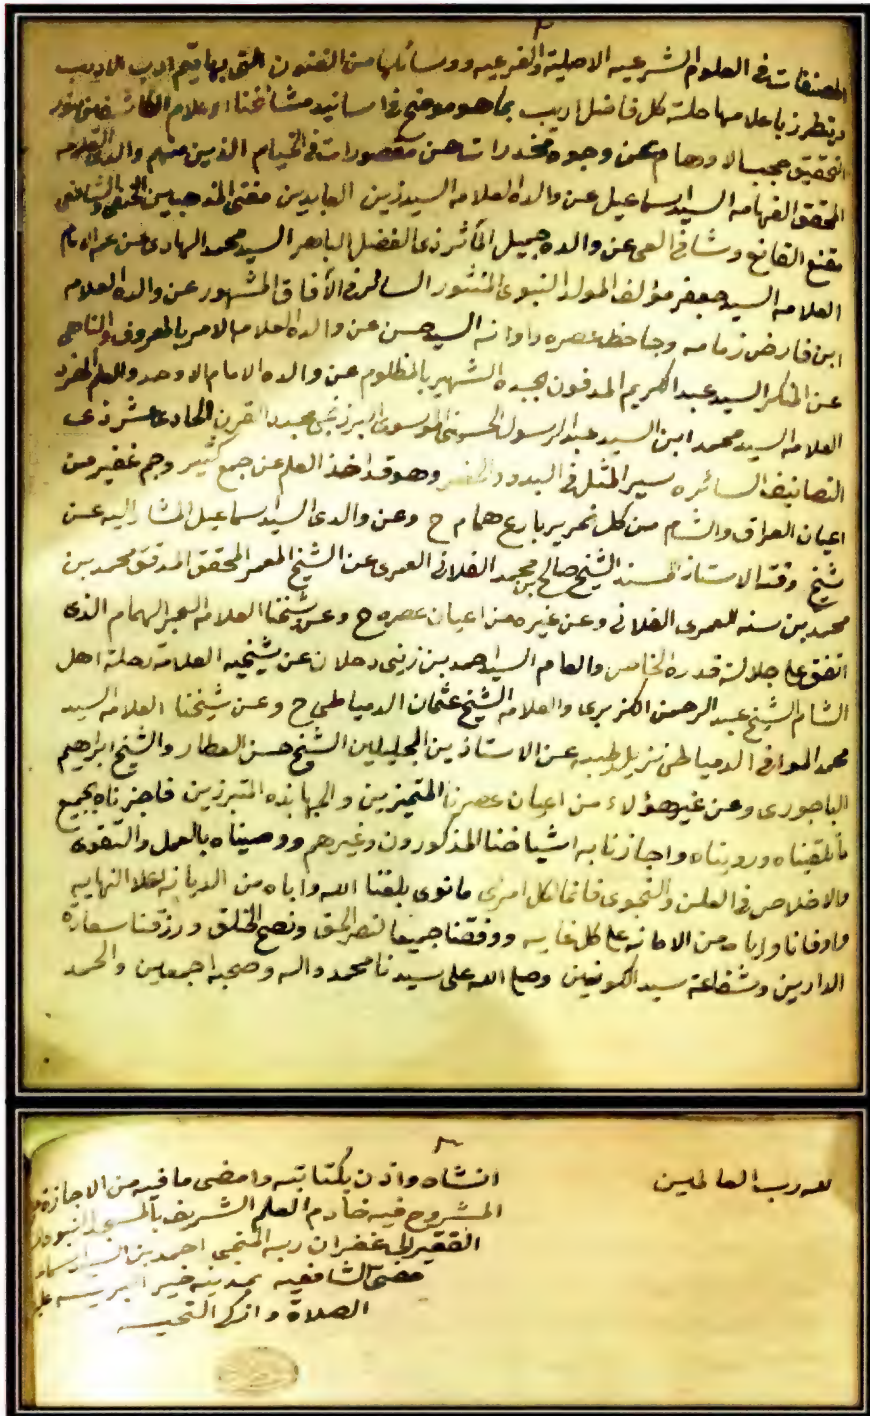 ٢
المصنفات في العلوم الشرعيه الاصلية والفرعيه ووسائلها من الفنون التي بها يتم ادب الاديب
ويتطرز باعلامها حلة كل فاضل اريب بما هو موضح في اسانيد مشائخنا الاعلام الكاشفين بنور
التحقيق حجب الاوهام عن وجوه مخدرات هن مقصورات في الخيام الذين منهم والدي العلامه
المحقق الفهامه السيد اسماعيل عن والده العلامه السيد زين العابدين مفتي المذهبين الحنفي والشافعي
مقنع القانع وشافي العي عن والده جميل المآثر ذي الفضل الباهر السيد محمد الهادي عن عمه الامام
العلامه السيد جعفر مؤلف المولد النبوي المنثور السائر في الآفاق المشهور عن والده العلام
ابن فارض زمامه وجاحظ عصره واوانه السيد حسن عن والده العلامه الامر بالمعروف والناهي
عن المنكر السيد عبد الكريم المدفون بجده الشهير بالمظلوم عن والده الامام الاوحد والعلم المفرد
العلامه السيد محمد ابن السيد عبد الرسول الحسيني الموسوي البرزنجي مجدد القرن الحادي عشر ذي
التصانيف السائره سير المثل في البدو والحضر وهو قد اخذ العلم عن جمع كثير وجم غفير من
اعيان العراق والشام من كل نحرير بارع همام ح وعن والدي السيد اسماعيل المشار اليه عن
شيخ وقته الاستاذ المسند الشيخ صالح بن محمد الفلاني العمري عن الشيخ المعمر المحقق المدقق محمد بن
محمد بن سنه العمري الفلاني وعن غيره من اعيان عصره ح وعن شيخنا العلامه الحبر الهمام الذي
اتفق على جلالة قدره الخاص والعام السيد احمد بن زيني دحلان عن شيخيه العلامة رحلة اهل
الشام الشيخ عبد الرحمن الكزبري والعلامه الشيخ عثمان الدمياطي ح وعن شيخنا العلامه السيد
محمد الموافي الدمياطي نزيل طيبه عن الاستاذين الجليلين الشيخ حسن العطار والشيخ ابراهيم
الباجوري وعن غير هؤلاء من اعيان عصرنا المتميزين والجهابذه المتبرزين فاجزناه بجميع
ما تلقيناه ورويناه واجازنا به اشياخنا المذكورون وغيرهم ووصيناه بالعمل والتقوى
والاخلاص في العلن والنجوى فانما لكل امرئ ما نوى بلغنا الله واياه من الديانه اعلا النهايه
واوفانا واياه من الامانه على كل غايه ووفقنا جميعا لنصر الحق ونصح الخلق ورزقنا سعادة
الدارين وشفاعة سيد الكونين وصلى الله على سيدنا محمد واله وصحبه اجمعين والحمد
لله رب العالمين
انشاه واذن بكتابته وامضى ما فيه من الاجازة
المشروح فيه خادم العلم الشريف بالمسجد النبوي
الفقير الى غفران ربه المنجي احمد بن السيد اسماعيل
مفتي الشافعيه بمدينة خير البريه عليه
الصلاة وازكى التحيه